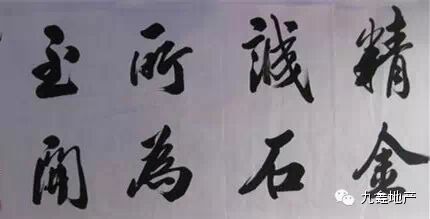 精誠所至
金石為開
九差地产